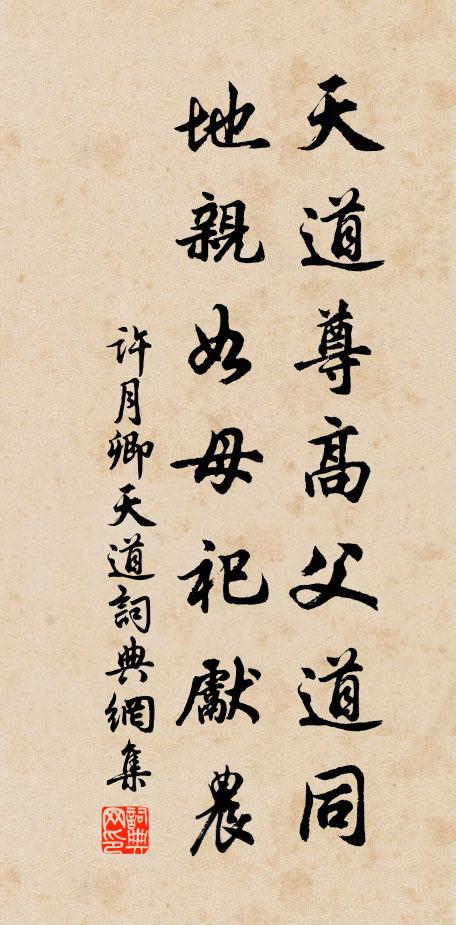 天道尊高父道同
地親如母祀獻農
許月卿天道詞典網集
詞典網印